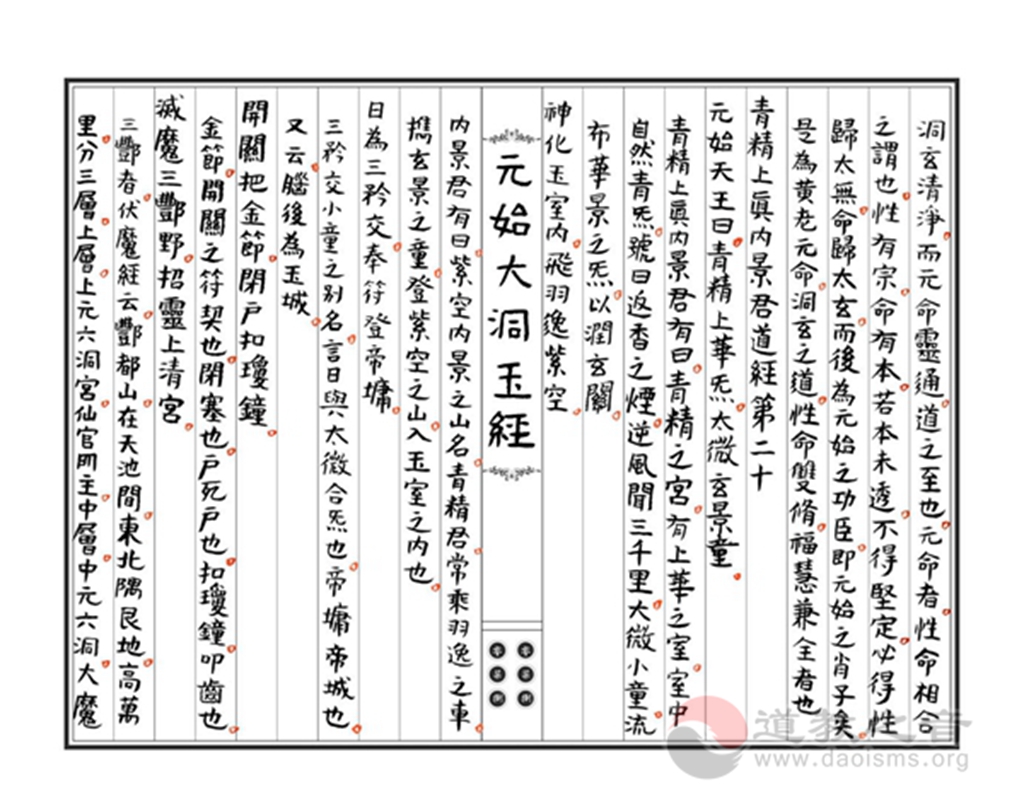 洞玄清淨而元命靈通道之至也元命者性命相合
之謂也性有宗命有本若本未透不得堅定必得性
歸太無命歸太玄而後為元始之功臣即元始之肖子矣
是為黄老元命洞玄之道性命雙脩福慧兼全者也
青精上真内景君道經第二十
元始天王曰青精上華炁太微玄景童
青精上真内景君有曰青精之宮有上華之室室中
自然青炁號曰返香之煙逆風聞三千里大微小童流
布華景之炁以潤玄關
神化玉室内飛羽逸紫空
元始大洞玉經
内景君有曰紫空内景之山名青精君常乘羽逸之車
携玄景之童登紫空之山入玉室之内也
日為三矜交奉符登帝墉
三矜交小童之别名言日與太微合炁也帝墉帝城也
又云腦後為玉城
開關把金節閉户扣瓊鐘
金節開關之符契也閉塞也户死户也扣瓊鐘叩齒也
滅魔三酆野招靈上清宮
三酆者伏魔經云酆都山在天池間東北隅艮地高萬
里分三層上層上元六洞宮仙官所主中層中元六洞大魔
道教之音
www.daoisms.org